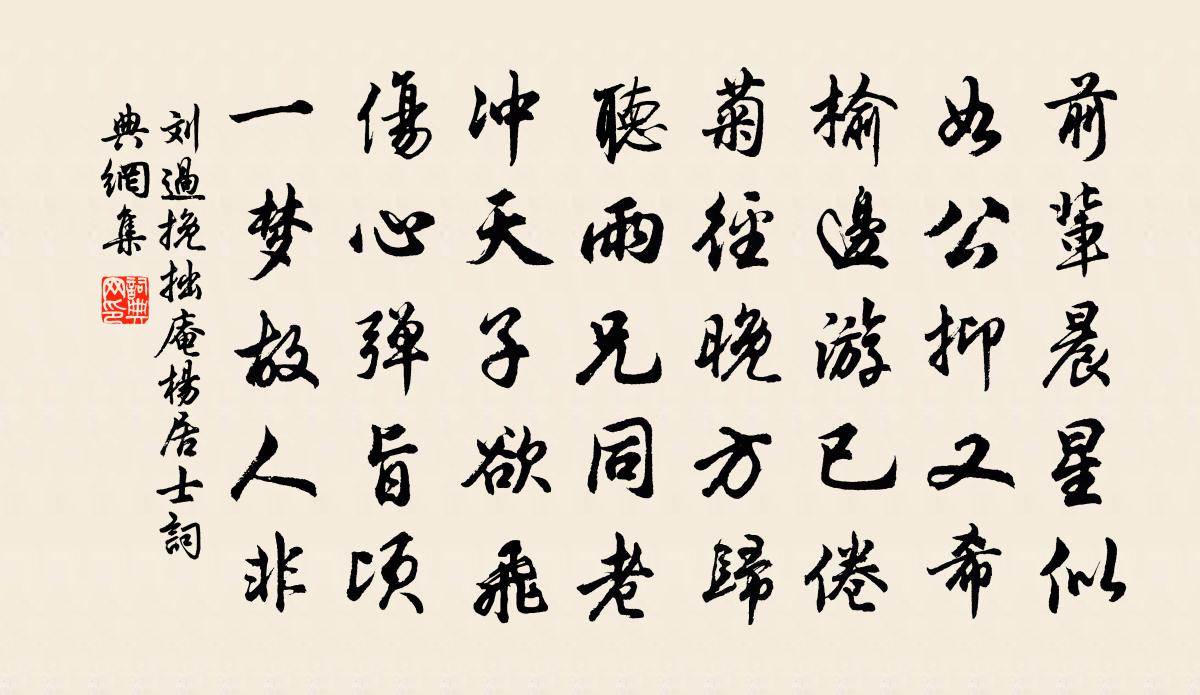 前輩晨星似
如公抑又希
榆邊游已倦
菊徑晚方歸
聽雨兄同老
沖天子欲飛
傷心弹旨頃
一梦故人非
刘過挽拙庵楊居士詞
典網集
詞典
网印